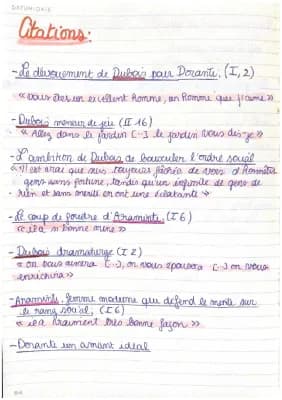 DATUM/DATE
Citations:
- Le dévouement de Dubois pour Dorante. (I, 2)
« vous êtes un excellent homme, un homme que j'aime »
- Dubois meneur de jeu (II 16)
« Allez dans le jardin [...] le jardin vous dis-je »
- L'ambition de Dubois de bousculer l'ordre social
« Il est vrai que suis toujours fâchée de voir d'honnêtes
gens sans fortune, tandis qu'un infinité de gens de
rien et sans mérite en ont une éclatante »
- Le coup de foudre d'Araminte. (I 6)
« il a bonne mine »
- Dubois dramaturge (I 2)
« on vous aimera [...], on vous épousera [...] on vous
enrichira »
- Araminte, femme moderne que défend le mérite sur
le rang social, (I 6)
« il a vraiment très bonne façon »
- Dorante un amant idéal